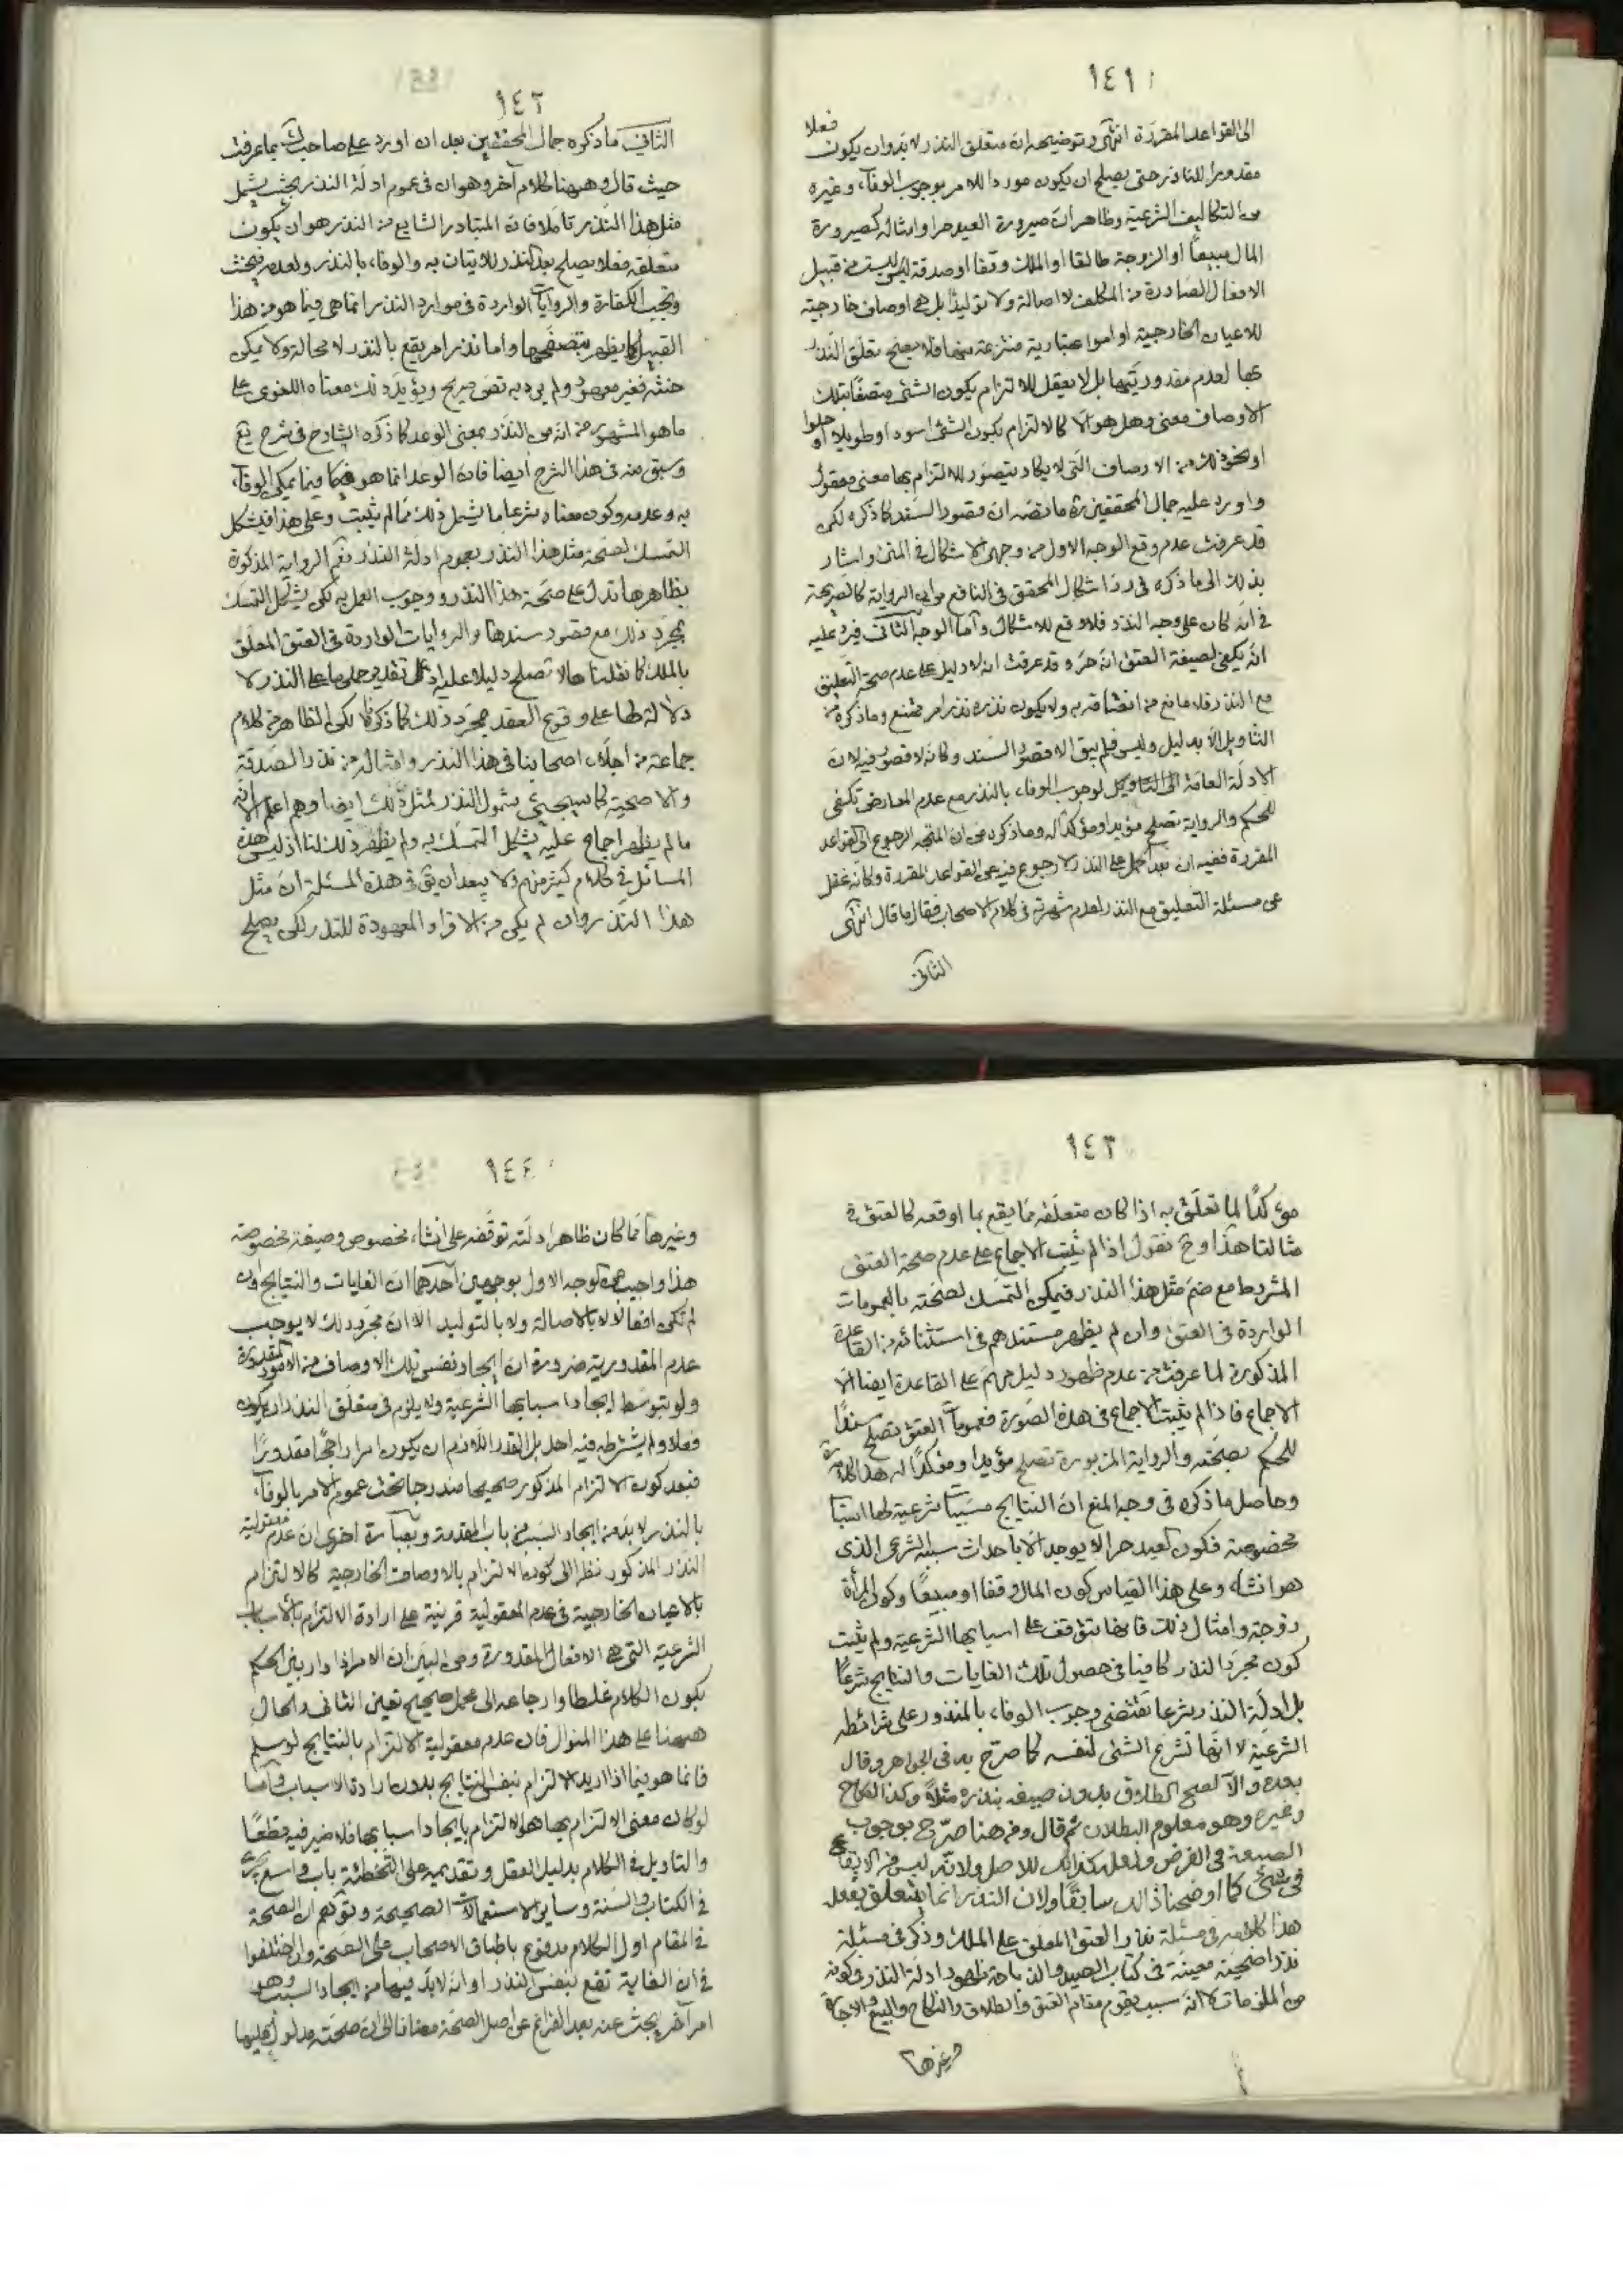 ١٤١
الى القواعد المقررة انتهى وتوضيحه ان متعلق النذر لا بد وان يكون فعلا
مقدورا للناذر حتى يصلح ان يكون موردا للامر بوجوب الوفاء وغيره
من التكاليف الشرعية وظاهر ان صيرورة العبد حرا وامثاله كصيرورة
المال مبيعا او الزوجة طالقا او الملك وقفا او صدقة ليست من قبيل
الافعال الصادرة من المكلف لا اصالة ولا توليدا بل هى اوصاف خارجية
للاعيان الخارجية او امور اعتبارية منتزعة منها فلا يصح تعلق النذر
بها لعدم مقدوريتها بل لا يعقل للالتزام بكون الشئ متصفا بتلك
الاوصاف معنى وهل هو الا كالالتزام بكون الشئ اسود او طويلا او حلوا
او نحو ذلك من الاوصاف التى لا يكاد يتصور للالتزام بها معنى معقول
واورد عليه جمال المحققين ره ما نصه ان قصور السند كما ذكره لكن
قد عرفت عدم وقع الوجه الاول من وجهى الاشكال فى المتن واشار
بذلك الى ما ذكره فى رد اشكال المحقق فى النافع من ان الرواية كالصريحة
فى انه كان على وجه النذر فلا وقع للاشكال واما الوجه الثانى فيرد عليه
انه يكفى لصيغة العتق انه حر وقد عرفت انه لا دليل على عدم صحة التعليق
مع النذر فلا مانع من انعتاقه به ولا يكون نذره نذر امر ممتنع وما ذكره من
التاويل الا بدليل وليس فلم يبق الا قصور السند وكانه لا قصور فيه لان
الادلة العامة الى التاويل لوجوب الوفاء بالنذر مع عدم المعارض تكفى
للحكم والرواية تصلح مؤيدا ومؤكدا له وما ذكره من ان المتجه الرجوع الى القواعد
المقررة ففيه ان بعد الحمل على النذر لا رجوع فيه عن القواعد المقررة وكانه غفل
عن مسئلة التعليق مع النذر لعدم شهرته فى كلام الاصحاب فقال ما قال انتهى
الثانى
١٤٢
الثانى ما ذكره جمال المحققين بعد ان اورد على صاحب ك بما عرفت
حيث قال وههنا كلام آخر وهو ان فى عموم ادلة النذر بحيث يشمل
مثل هذا النذر تاملا فان المتبادر الشايع من النذر هو ان يكون
متعلقه فعلا يصلح بعد النذر للاتيان به والوفاء بالنذر ولعدمه فيحنث
وتجب الكفارة والروايات الواردة فى موارد النذر انما هى فيما هو من هذا
القبيل كما يظهر بتصفحها واما نذر امر يقع بالنذر لا محالة ولا يمكن
حنثه فغير معهود ولم يرد به نص صريح ويؤيد ذلك معناه اللغوى على
ما هو المشهور من انه من النذر بمعنى الوعد كما ذكره الشارح فى شرح يع
وسبق منه فى هذا الشرح ايضا فان الوعد انما هو فيما يمكن الوفاء
به وعدمه وكون معناه شرعا ما يشمل ذلك مما لم يثبت وعلى هذا فيشكل
التمسك لصحة مثل هذا النذر بعموم ادلة النذر نعم الرواية المذكورة
بظاهرها تدل على صحة هذا النذر ووجوب العمل به لكن يشكل التمسك
بمجرد ذلك مع قصور سندها والروايات الواردة فى العتق المعلق
بالملك كما نقلناها لا تصلح دليلا عليه اذ على تقدير حملها على النذر لا
دلالة لها على وقوع العقد بمجرد ذلك كما ذكرنا لكن الظاهر من كلام
جماعة من اجلاء اصحابنا فى هذا النذر وامثاله من نذر الصدقة
والاضحية كما سيجئ شمول النذر لمثل ذلك ايضا وهم اعلم الا انه
ما لم يظهر اجماع عليه يشكل التمسك به ولم يظهر ذلك لنا اذ ليس هذه
المسائل فى كلام كثير منهم ولا يبعد ان يق فى هذه المسئلة ان مثل
هذا النذر وان لم يكن من الافراد المعهودة للنذر لكن يصلح
١٤٣
مؤكدا لما تعلق به اذا كان متعلقه مما يقع بما اوقعه كالعتق فى
مثالنا هذا وح نقول اذا لم يثبت الاجماع على عدم صحة العتق
المشروط مع ضم مثل هذا النذر فيمكن التمسك لصحته بالعمومات
الواردة فى العتق وان لم يظهر مستندهم فى استثنائه من القاعدة
المذكورة لما عرفت من عدم ظهور دليل منهم على القاعدة ايضا الا
الاجماع فاذا لم يثبت الاجماع فى هذه الصورة فعمومات العتق تصلح سندا
للحكم بصحته والرواية المزبورة تصلح مؤيدا ومؤكدا له هذا كلامه ره
وحاصل ما ذكره فى وجه المنع ان النتايج مسببات شرعية لها اسباب
مخصوصة فكون العبد حرا لا يوجد الا باحداث سببه الشرعى الذى
هو انشاء وعلى هذا القياس كون المال وقفا او مبيعا وكون المرأة
زوجة وامثال ذلك فانها تتوقف على اسبابها الشرعية ولم يثبت
كون مجرد النذر كافيا فى حصول تلك الغايات والنتايج شرعا
بل ادلة النذر شرعا تقتضى وجوب الوفاء بالمنذور على شرائطه
الشرعية لا انها تشرع الشئ لنفسه كما صرح به فى الجواهر وقال
بعده والا لصح الطلاق بدون صيغة بنذره مثلا وكذا النكاح
وغيره وهو معلوم البطلان ثم قال ومن هنا صرح بوجوب
الصيغة فى الفرض ولعله كذلك للاصل ولانه ليس من الايقاع
فى شئ كما اوضحنا ذلك سابقا ولان النذر انما يتعلق بفعل
هذا كلامه فى مسئلة نذر العتق المعلق على الملك وذكر فى مسئلة
نذر اضحية معينة فى كتاب الصيد والذباحة ظهور ادلة النذر فى كونه
من الملزمات لا انه سبب يقوم مقام العتق والطلاق والنكاح والبيع والاجارة
وغيرها
١٤٤
وغيرها مما كان ظاهر ادلته توقفه على انشاء مخصوص وصيغة مخصوصة
هذا واجيب عن الوجه الاول بوجهين احدهما ان الغايات والنتايج وان
لم تكن افعالا لا بالاصالة ولا بالتوليد الا ان مجرد ذلك لا يوجب
عدم المقدورية ضرورة ان ايجاد نفس تلك الاوصاف من الامور المقدورة
ولو بتوسط ايجاد اسبابها الشرعية ولا يلزم فى متعلق النذر ان يكون
فعلا ولم يشترطه فيه احد بل القدر اللازم ان يكون امرا راجحا مقدورا
فبعد كون الالتزام المذكور صحيحا مندرجا تحت عموم الامر بالوفاء
بالنذر لا بد من ايجاد السبب من باب المقدمة وبعبارة اخرى ان عدم معقولية
النذر المذكور نظرا الى كون الالتزام بالاوصاف الخارجية كالالتزام
بالاعيان الخارجية فى عدم المعقولية قرينة على ارادة الالتزام بالاسباب
الشرعية التى هى الافعال المقدورة ومن البين ان الامر اذا دار بين الحكم
بكون الكلام غلطا وارجاعه الى محمل صحيح تعين الثانى والحال
ههنا على هذا المنوال فان عدم معقولية الالتزام بالنتايج لو سلم
فانما هو فيما اذا اريد الالتزام بنفس النتايج بدون ارادة الاسباب واما
لو كان معنى الالتزام بها هو الالتزام بايجاد اسبابها فلا ضير فيه قطعا
والتاويل فى الكلام بدليل العقل وتقديمه على التخطئة باب واسع
فى الكتاب والسنة وساير الاستعمالات الصحيحة وتوهم ان الصحة
فى المقام اول الكلام مدفوع باطباق الاصحاب على الصحة وان اختلفوا
فى ان الغاية تقع بنفس النذر او انه لا بد فيها من ايجاد السبب وهو
امر آخر يبحث عنه بعد الفراغ عن اصل الصحة مضافا الى ان صحته مدلول عليها